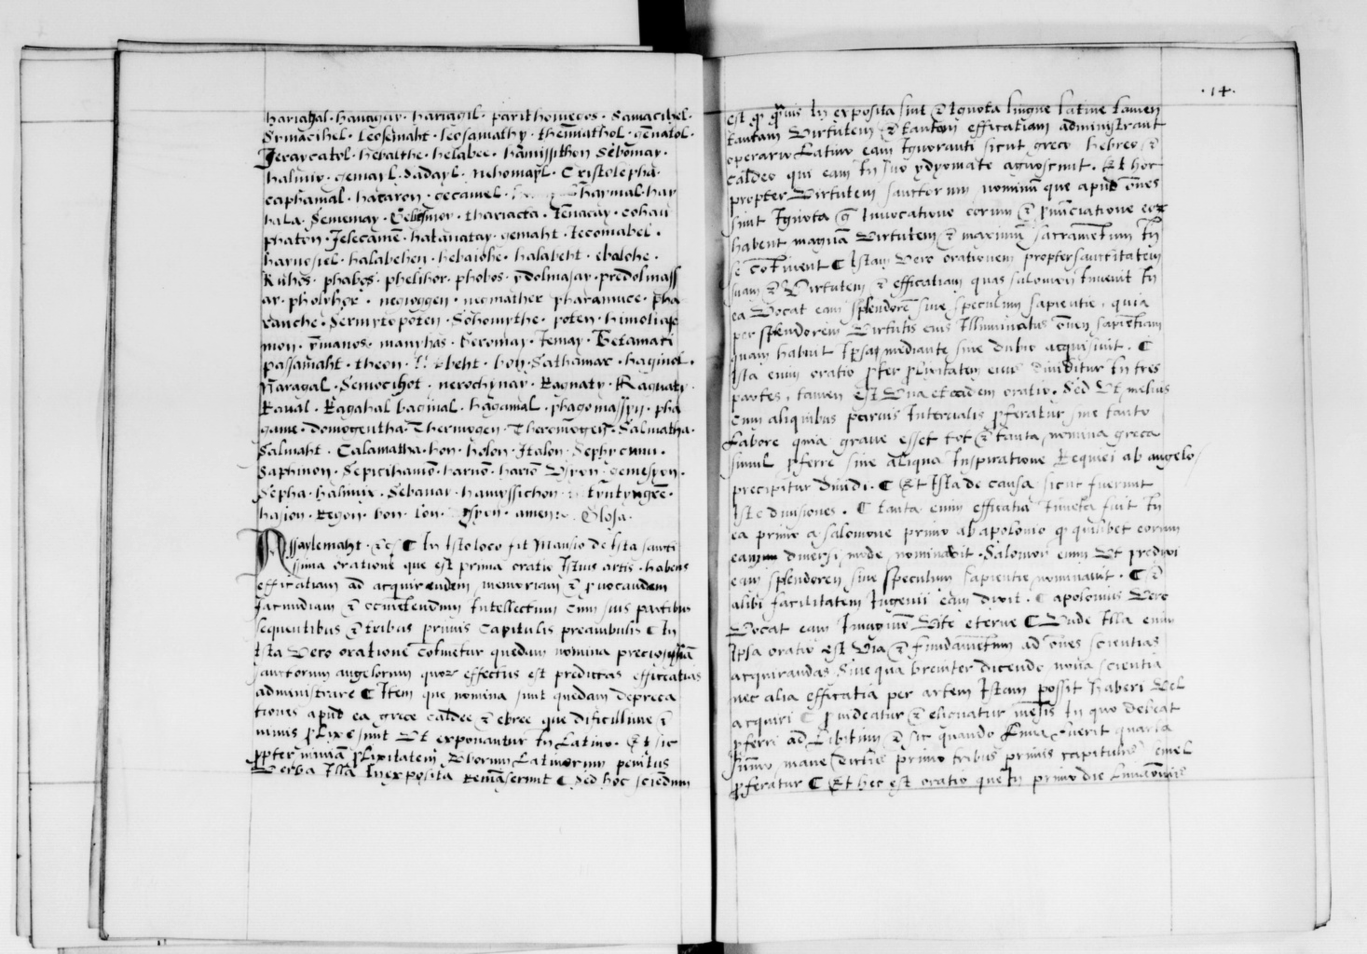 hariagal · hanagar · hariagil · parithomecos · Samacihel ·
Simacihel · leosemaht · leosamathy · themiathol · genatol ·
Jerarcatol · hebalthe · helabee · hamissithon Sebomar ·
halmir · gemayl · dadayl · nehomayl · Cristolepha ·
caphamal · hataron · cecamel · harmal · har
hala · Semenay · Gelismor · thariacta · Tenacay · cohau
phaton · Jelecamē · hatanatay · gemaht · Iecomabel ·
harnesiel · halabehen · hebaiohe · halabeht · ebalohe ·
Kihes · phabes · phelihor · phobos · ydolmasar · predolmass
ar · pholihor · negioggen · neomather pharamice · pha
ranche · Sermytopoten · Sohomythe · poten · himoliap
mon · rmanos · manrhas · Geromay · Iemay · Tetamati
passamaht · theon · beht · bon · Sathamac · haginol ·
Naragal · Semocihot · nerochinar · Ragnaty · Ragnate
Ranal · Ragahal baginal · hagamal · phagomassyn · pha
game · domogentha · Thermogen · Theremogen · Salmatha ·
Salmaht · Calamatha · hon · holon · Italon · Sephremu ·
Saphinon · Sepicihamō · harnō · hariō Usyon · gemesyon ·
Sepha · halmix · Sebanar · hamyssichon ·
hasion · Regon · bon · Ion · usyon · amen · Glosa ·
Assaylemaht · rc ¶ In isto loco fit mansio de ista sancti
ssima oratione que est prima oratio istius artis · habens
efficatiam ad acquirendem memoriam & provocandem
facundiam & retinēdum intellectum cum suis partibus
sequentibus & tribus primis capitulis preambulis ¶ In
ista vero oratione continetur quedam nomina preciosissima
sanctorum angelorum quorum effectus est predictas efficatias
administrare ¶ Item que nomina sunt quedam depreca
tiones apud ea grece caldee & ebree que dificillime &
nimis plixe sunt ut exponantur in latino · & sic
ppter nimiā plixitatem Verborum latinorum penitus
Verba illa inexposita remāserunt ¶ sed hoc sciendum
· 14 ·
est q quis in exposita sint & ignota lingue latine tamen
tantam virtutem & tantam efficatiam administrant
operario latino eam ignoranti sicut greco hebreo &
caldeo qui eam in suo ydyomate agnoscunt · Et hoc
propter virtutem sanctorum nominū que apud ōnes
sunt ignota invocatione eorum & pnūciatione eor
habent magnā virtutem & maximū sacramētum in
se cōtinent ¶ Istam vero orationem propter sanctitatem
suam & virtutem & efficatiam quas salomon invenit in
ea vocat eam splendorē sive speculum sapientie, quia
per splendorem virtutis eius illuminatus ōnem sapiētiam
quam habuit ipsaq mediante sine dubio acquisivit · ¶
Ista enim oratio pter plixitatem eius dividitur in tres
partes, tamen est una et eadem oratio · sed ut melius
cum aliquibus parvis intervalis pferatur sine tanto
labore quia grave esset tot & tanta nomina greca
simul pferre sine aliqua inspiratione requiei ab angelo
precipitur dividi · ¶ Et ista de causa sicut fuerunt
iste divisiones · ¶ tanta enim efficatia inventa fuit in
ea primo a salomone primo ab apolonio q quilibet eorum
eam diversi mode nominavit · Salomon enim ut predixi
eam splendorem sive speculum sapientie nominavit · ¶ &
alibi facilitatem ingenii eam dixit · ¶ apolonius vero
vocat eam imaginē vite eterne ¶ Unde illa enim
ipsa oratio est via & fundamētum ad ōnes scientias
acquirandas sine qua breviter dicendo nova scientia
nec alia efficatia per artem istam possit haberi vel
acquiri ¶ pvideatur & eligatur mēsis in quo debeat
pferri ad libitum & sic quando luna fuerit quarta
summo mane dictis primo tribus primis capitulis semel
pferatur ¶ Et hec est oratio que in primo die